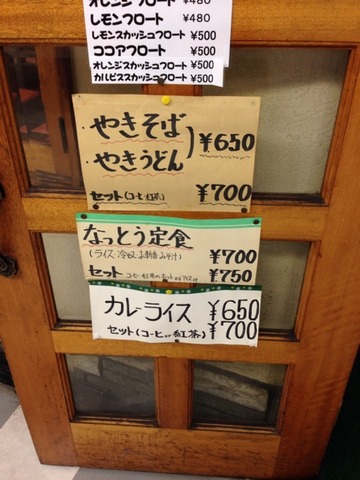 オレンジフロート ¥480
レモンフロート ¥480
レモンスカッシュフロート ¥500
ココアフロート ¥500
オレンジスカッシュフロート ¥500
カルピススカッシュフロート ¥500
やきそば
やきうどん
) ¥650
セット(コーヒー、紅茶) ¥700
なっとう定食 ¥700
(ライス・冷奴・お新香・みそ汁)
セット コーヒー、紅茶の ¥750
カレーライス ¥650
セット(コーヒー、紅茶) ¥700